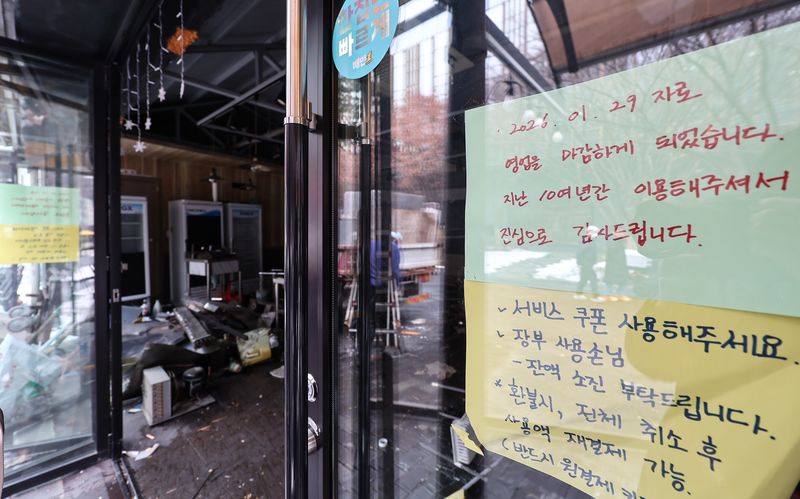 빠르게
· 2026. 01. 29 자로
영업을 마감하게 되었습니다.
지난 10여년간 이용해주셔서
진심으로 감사드립니다.
✓ 서비스 쿠폰 사용해주세요.
✓ 장부 사용손님
- 잔액 소진 부탁드립니다.
* 환불시, 전체 취소 후
사용액 재결제 가능.
(반드시 원결제